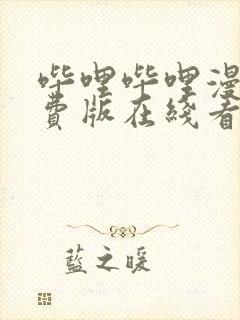 哔哩哔哩漫
费版在线看
藍之暖